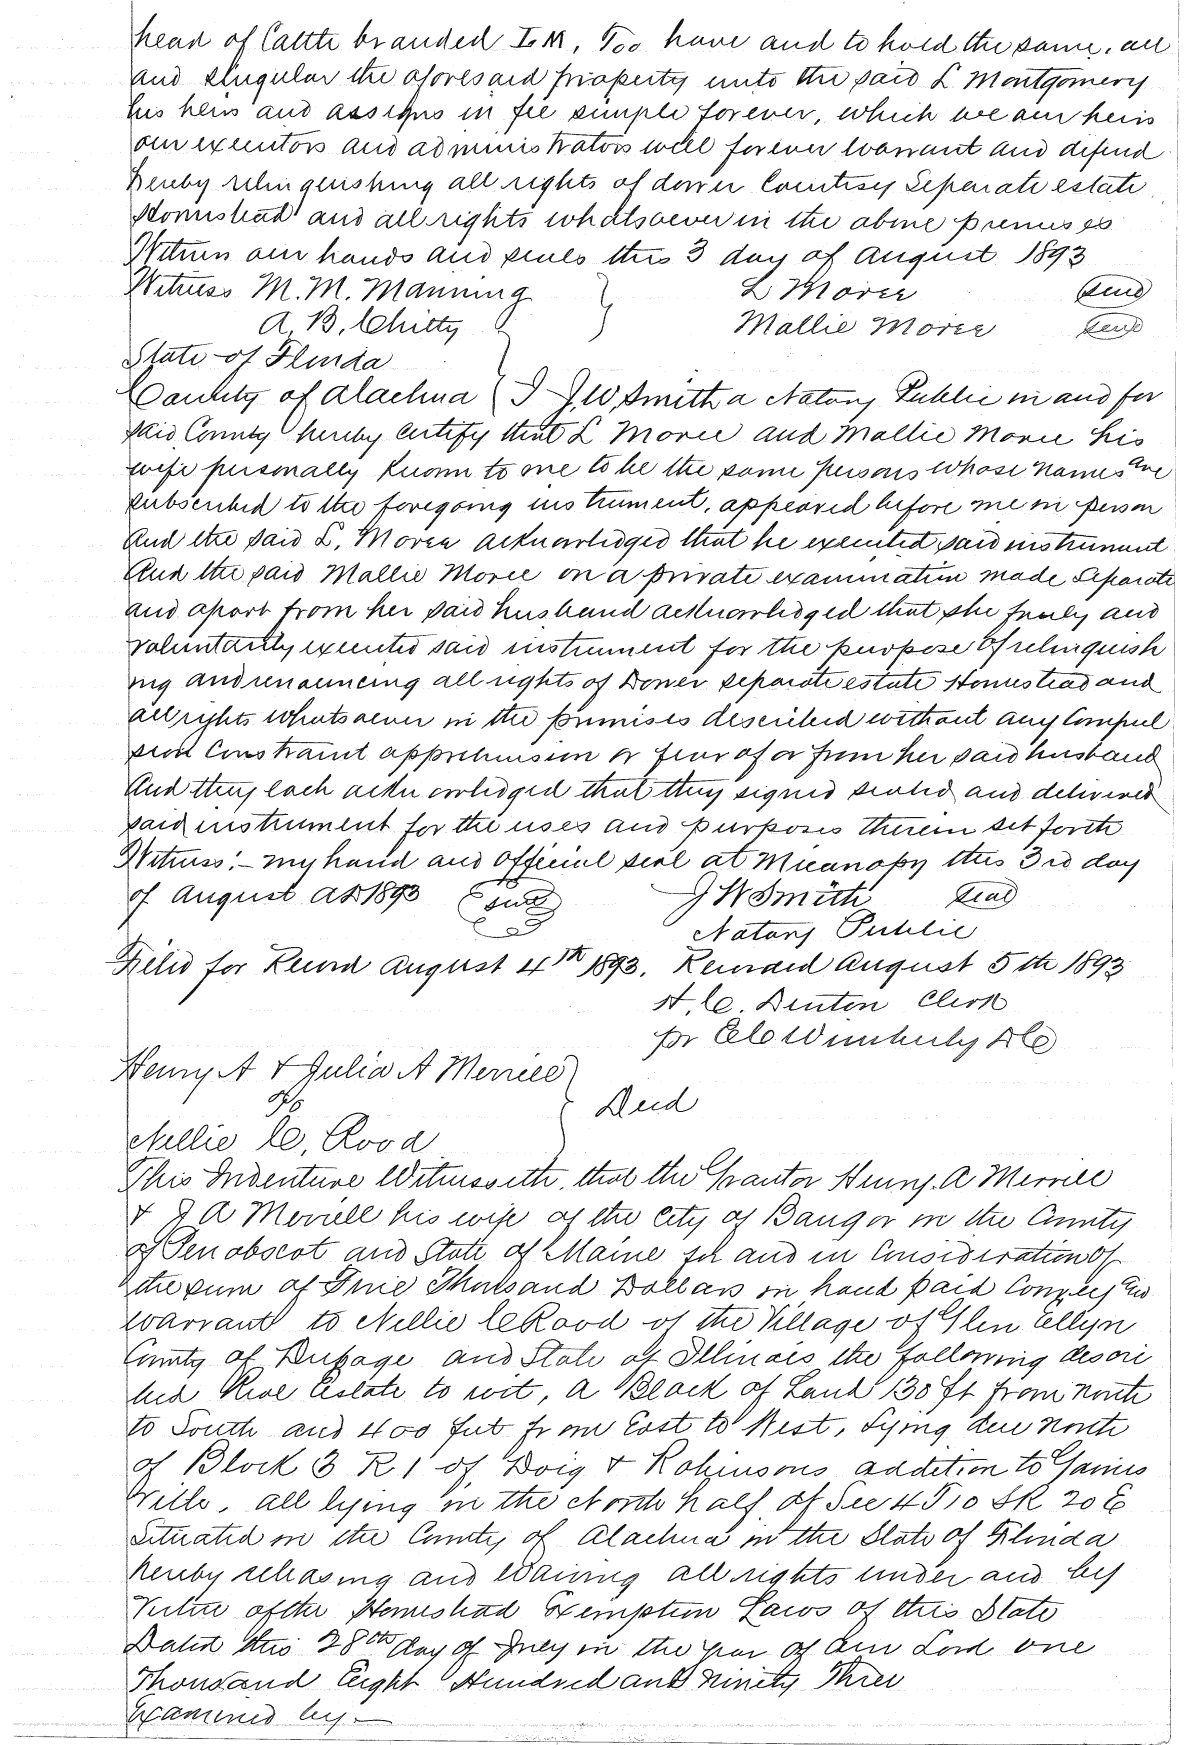 head of Cattle branded LM, Too have and to hold the same, all
and singular the aforesaid property unto the said L Montgomery
his heirs and assigns in fee simple forever, which we our heirs
our executors and administrators will forever warrant and defend
hereby relinquishing all rights of dower Courtisy Separate estate
Homestead and all rights whatsoever in the above premises
Witness our hands and seals this 3 day of August 1893
Witness M. M. Manning L Moree seal
A. B. Chitty Mallie Moree seal
State of Florida
County of Alachua I J. W. Smith a Notary Public in and for
said County hereby certify that L Moree and Mallie Moree his
wife personally known to me to be the same persons whose names are
subscribed to the foregoing instrument, appeared before me in person
And the said L. Moree acknowledged that he executed said instrument
And the said Mallie Moree on a private examination made Separate
and apart from her said husband acknowledged that she freely and
voluntarily executed said instrument for the purpose of relinquish
ing and renouncing all rights of Dower separate estate Homestead and
all rights whatsoever in the premises described without any Compul
sion Constraint apprehension or fear of or from her said husband
And they each acknowledged that they signed sealed and delivered
said instrument for the uses and purposes therein set forth
Witness:- my hand and official seal at Micanopy this 3rd day
of August AD 1893 seal J W Smith seal
Notary Public
Filed for Record August 4th 1893. Recorded August 5th 1893
H. C. Denton Clerk
pr E C Wimberly DC
Henry A & Julia A Merrill
To Deed
Nellie C. Rood
This Indenture Witnesseth, that the Grantor Henry. A Merrill
& J A Merrill his wife of the City of Bangor in the County
of Penobscot and State of Maine for and in Consideration of
the sum of Five Thousand Dollars in hand paid Convey and
warrant to Nellie C Rood of the Village of Glen Ellyn
County of Dupage and State of Illinois the following descri
bed Real Estate to wit, A Block of Land 130 ft from north
to South and 400 feet from East to West, Lying due north
of Block 3 R 1 of Doig & Robinsons addition to Gaines
Ville, all lying in the North half of Sec 4 T 10 S R 20 E
Situated in the County of Alachua in the State of Florida
hereby releasing and Waiving all rights under and by
Virtue of the Homestead Exemption Laws of this State
Dated this 28th day of July in the year of our Lord one
Thousand Eight Hundred and Ninety Three
Examined by—